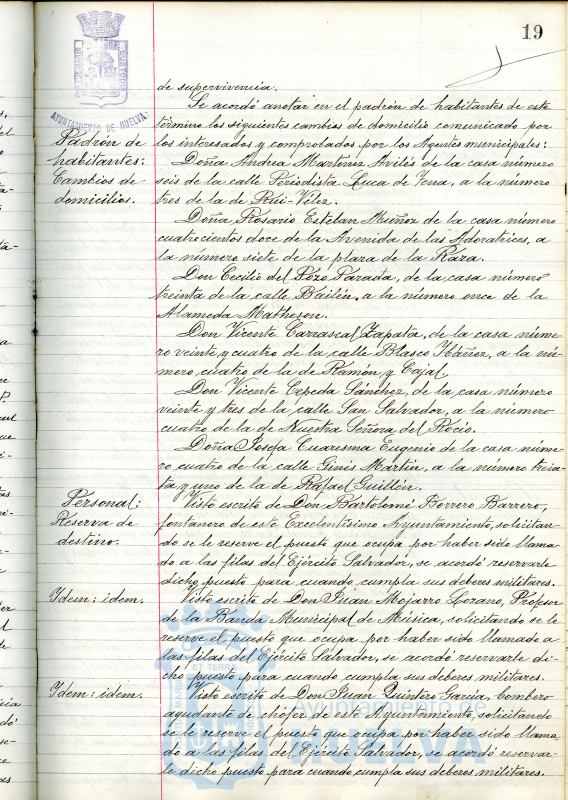 19
AYUNTAMIENTO DE HUELVA
de supervivencia.
Se acordó anotar en el padrón de habitantes de este
término los siguientes cambios de domicilio comunicado por
los interesados y comprobados por los Agentes municipales:
Padrón de
habitantes:
Cambios de
domicilios.
Doña Andrea Martínez Avilés de la casa número
seis de la calle Periodista Luca de Tena, a la número
tres de la de Rui-Vélez.
Doña Rosario Esteban Muñoz de la casa número
cuatrocientos doce de la Avenida de las Adoratrices, a
la número siete de la plaza de la Raza.
Don Cecilio del Pozo Parada, de la casa número
treinta de la calle Bailén, a la número once de la
Alameda Matheson.
Don Vicente Carrascal Zapata, de la casa núme-
ro veinte y cuatro de la calle Blasco Ibáñez, a la nú-
mero, cuatro de la de Ramón y Cajal.
Don Vicente Cepeda Sánchez, de la casa número
veinte y tres de la calle San Salvador, a la número
cuatro de la de Nuestra Señora del Rocío.
Doña Josefa Cuaresma Eugenio de la casa núme-
ro cuatro de la calle Ginés Martín, a la número trein-
ta y uno de la de Rafael Guillén.
Personal:
Reserva de
destino.
Visto escrito de Don Bartolomé Borrero Barrero,
fontanero de este Excelentísimo Ayuntamiento, solicitan-
do se le reserve el puesto que ocupa por haber sido llama-
do a las filas del Ejército Salvador, se acordó reservarle
dicho puesto para cuando cumpla sus deberes militares.
Ydem: idem.
Visto escrito de Don Juan Mojarro Lozano, Profesor
de la Banda Municipal de Música, solicitando se le
reserve el puesto que ocupa por haber sido llamado a
las filas del Ejército Salvador, se acordó reservarle di-
cho puesto para cuando cumpla sus deberes militares.
Ydem: idem.
Visto escrito de Don Juan Quintero García, bombero
ayudante de chófer de este Ayuntamiento, solicitando
se le reserve el puesto que ocupa por haber sido llama-
do a las filas del Ejército Salvador, se acordó reservar-
le dicho puesto para cuando cumpla sus deberes militares.
ET TERRÆ
Ayuntamiento de
HUELVA